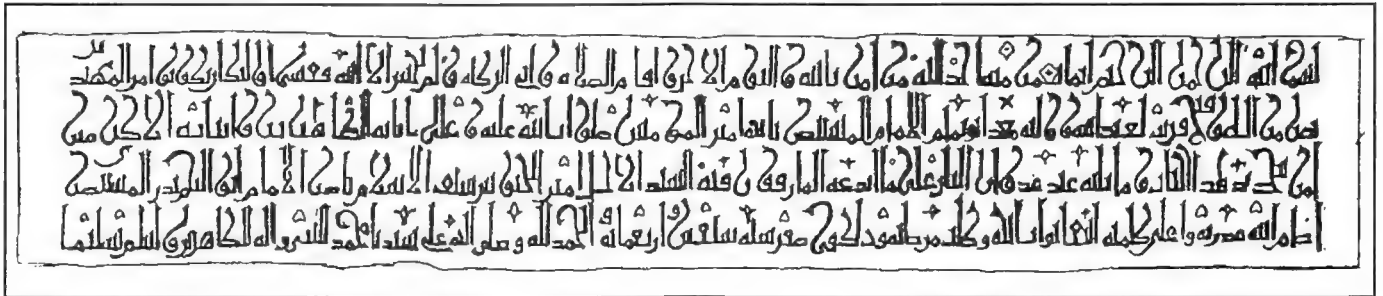 بسم الله الرحمن الرحيم انما يعمر مساجد الله من امن بالله واليوم الاخر واقام الصلاه واتى الزكاه ولم يخش الا الله فعسى اولئك ان يكونوا من المهتدين
نصر من الله وفتح قريب لعبد الله ووليه معد ابي تميم الامام المستنصر بالله امير المؤمنين صلوات الله عليه وعلى ابائه الطاهرين وابنائه الاكرمين
امر بتجديد هذا المارقون فتاه السيد الاجل امير الجيوش سيف الاسلام ناصر الامام ابو النجم بدر المستنصري
ادام الله قدرته واعلى كلمته ابتغا ثواب الله وطلب مرضاته وذلك في صفر سنه سبعين واربعمائه الحمد لله وصلى الله على سيدنا محمد النبي واله الطاهرين وسلم تسليما